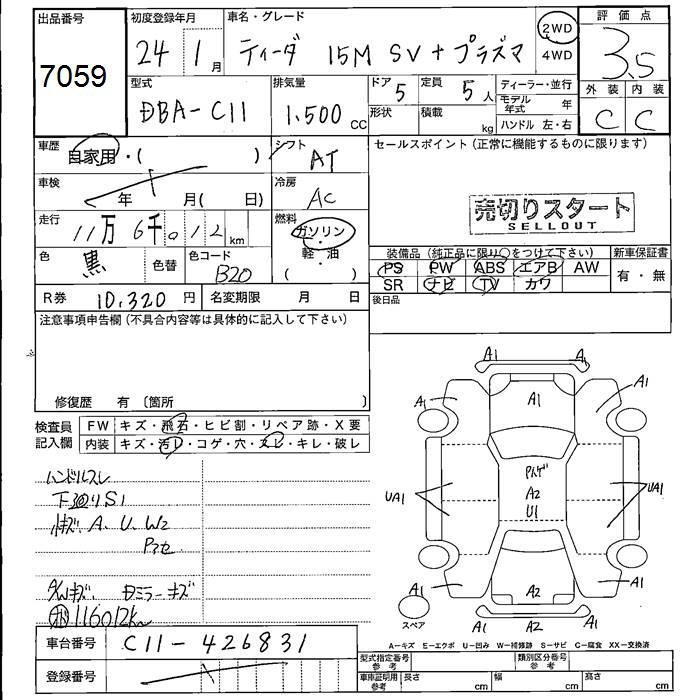 出品番号
7059
初度登録年月
24 1月
車名・グレード
ティーダ 15M SV + プラズマ
2WD
4WD
評価点
3.5
型式
DBA-C11
排気量
1.500cc
ドア
5
形状
定員
5人
積載
kg
ディーラー・並行
モデル年式 年
ハンドル 左・右
外装 内装
C C
車歴
自家用・( )
シフト
AT
セールスポイント(正常に機能するものに限ります)
売切りスタート
SELLOUT
車検
年 月( 日)
冷房
AC
走行
11万6千012km
燃料
ガソリン
軽・油
( )
色
黒
色替
色コード
B20
装備品(純正品に限り○をつけて下さい)
PS PW ABS エアB AW
SR ナビ TV カワ
新車保証書
有・無
R券 10,320円
名変期限 月 日
後日品
注意事項申告欄(不具合内容等は具体的に記入して下さい)
修復歴 有〔箇所 〕
検査員記入欄
FW キズ・飛石・ヒビ割・リペア跡・X要
内装 キズ・汚レ・コゲ・穴・スレ・キレ・破レ
ハンドルスレ
下廻りS1
A、U、W2
キズ
116012km
A1 A1
A1 A1 A1
A2
U1
UA1 UA1
A1 A2 A1
A1 A2 A1
スペア
車台番号 C11-426831
登録番号
A―キズ E―エクボ U―凹み W―補修跡 S―サビ C―腐食 XX―交換済
型式指定番号参考
類別区分番号参考
車庫証明用参考 長さ cm 幅 cm 高さ cm